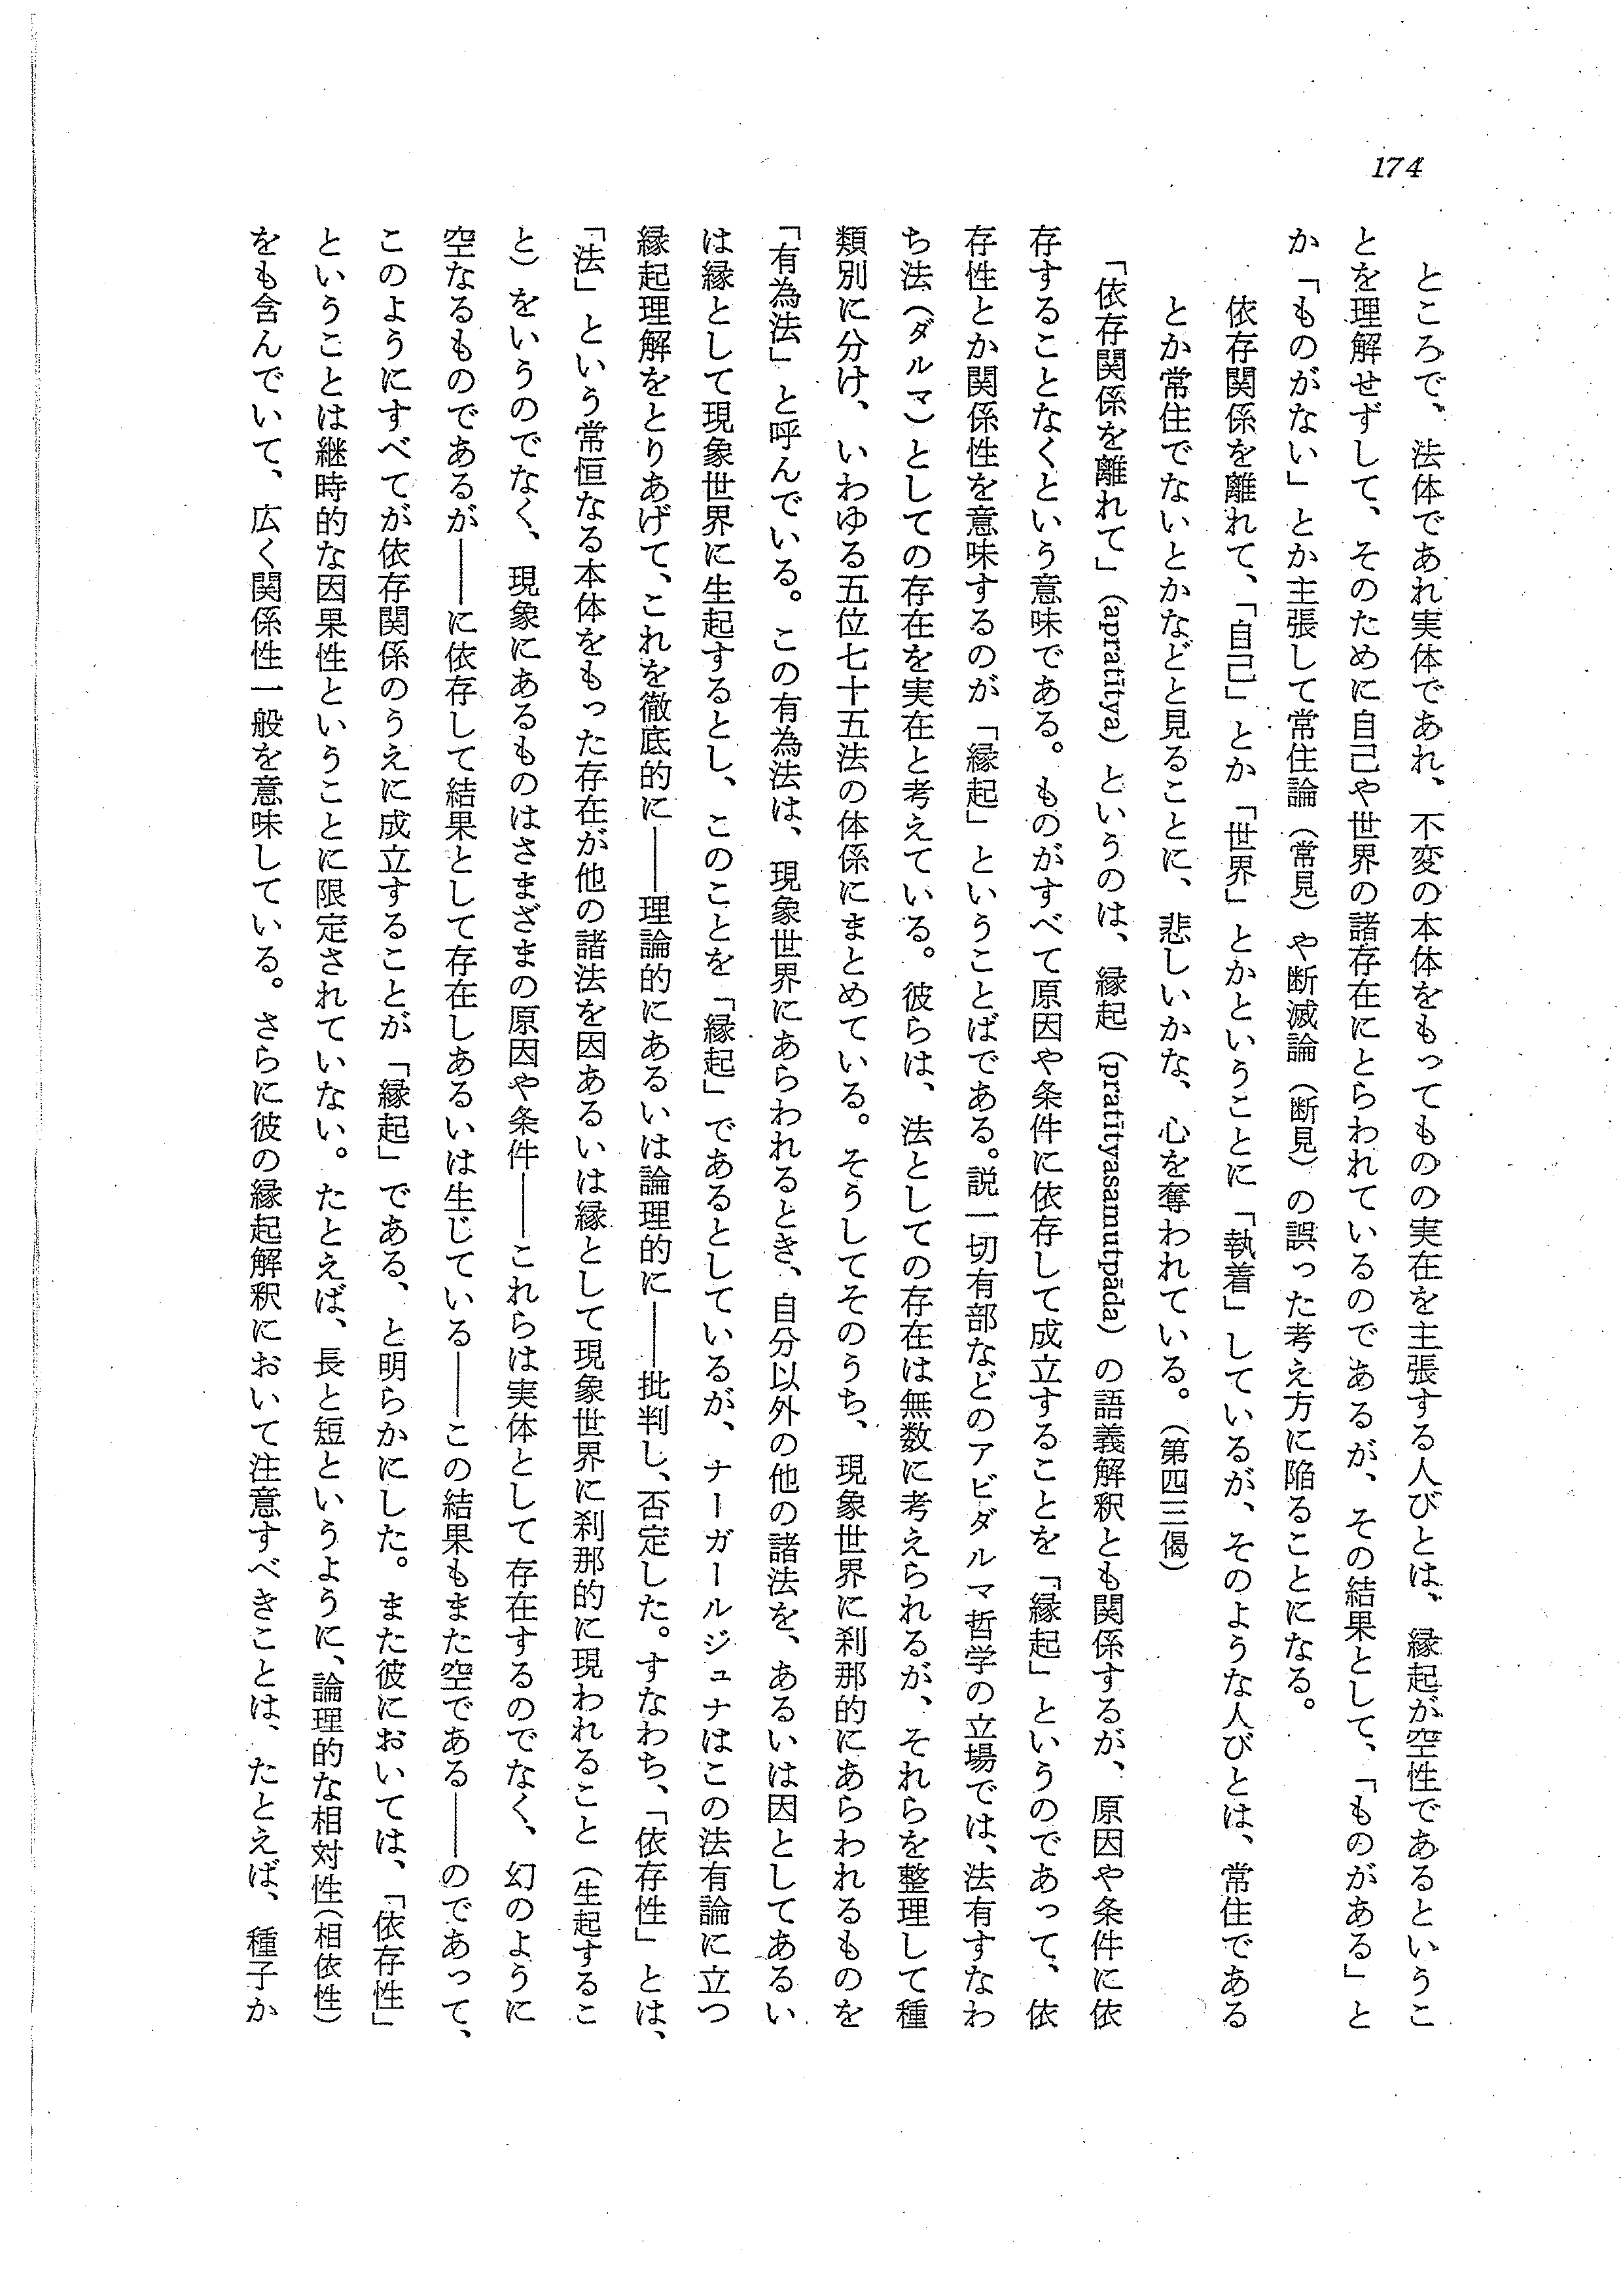 174
ところで、法体であれ実体であれ、不変の本体をもってものの実在を主張する人びとは、縁起が空性であるというこ
とを理解せずして、そのために自己や世界の諸存在にとらわれているのであるが、その結果として、「ものがある」と
か「ものがない」とか主張して常住論（常見）や断滅論（断見）の誤った考え方に陥ることになる。
依存関係を離れて、「自己」とか「世界」とかということに「執着」しているが、そのような人びとは、常住である
とか常住でないとかなどと見ることに、悲しいかな、心を奪われている。（第四三偈）
「依存関係を離れて」（apratītya）というのは、縁起（pratītyasamutpāda）の語義解釈とも関係するが、原因や条件に依
存することなくという意味である。ものがすべて原因や条件に依存して成立することを「縁起」というのであって、依
存性とか関係性を意味するのが「縁起」ということばである。説一切有部などのアビダルマ哲学の立場では、法有すなわ
ち法（ダルマ）としての存在を実在と考えている。彼らは、法としての存在は無数に考えられるが、それらを整理して種
類別に分け、いわゆる五位七十五法の体係にまとめている。そうしてそのうち、現象世界に刹那的にあらわれるものを
「有為法」と呼んでいる。この有為法は、現象世界にあらわれるとき、自分以外の他の諸法を、あるいは因としてあるい
は縁として現象世界に生起するとし、このことを「縁起」であるとしているが、ナーガールジュナはこの法有論に立つ
縁起理解をとりあげて、これを徹底的に――理論的にあるいは論理的に――批判し、否定した。すなわち、「依存性」とは、
「法」という常恒なる本体をもった存在が他の諸法を因あるいは縁として現象世界に刹那的に現われること（生起するこ
と）をいうのでなく、現象にあるものはさまざまの原因や条件――これらは実体として存在するのでなく、幻のように
空なるものであるが――に依存して結果として存在しあるいは生じている――この結果もまた空である――のであって、
このようにすべてが依存関係のうえに成立することが「縁起」である、と明らかにした。また彼においては、「依存性」
ということは継時的な因果性ということに限定されていない。たとえば、長と短というように、論理的な相対性（相依性）
をも含んでいて、広く関係性一般を意味している。さらに彼の縁起解釈において注意すべきことは、たとえば、種子か